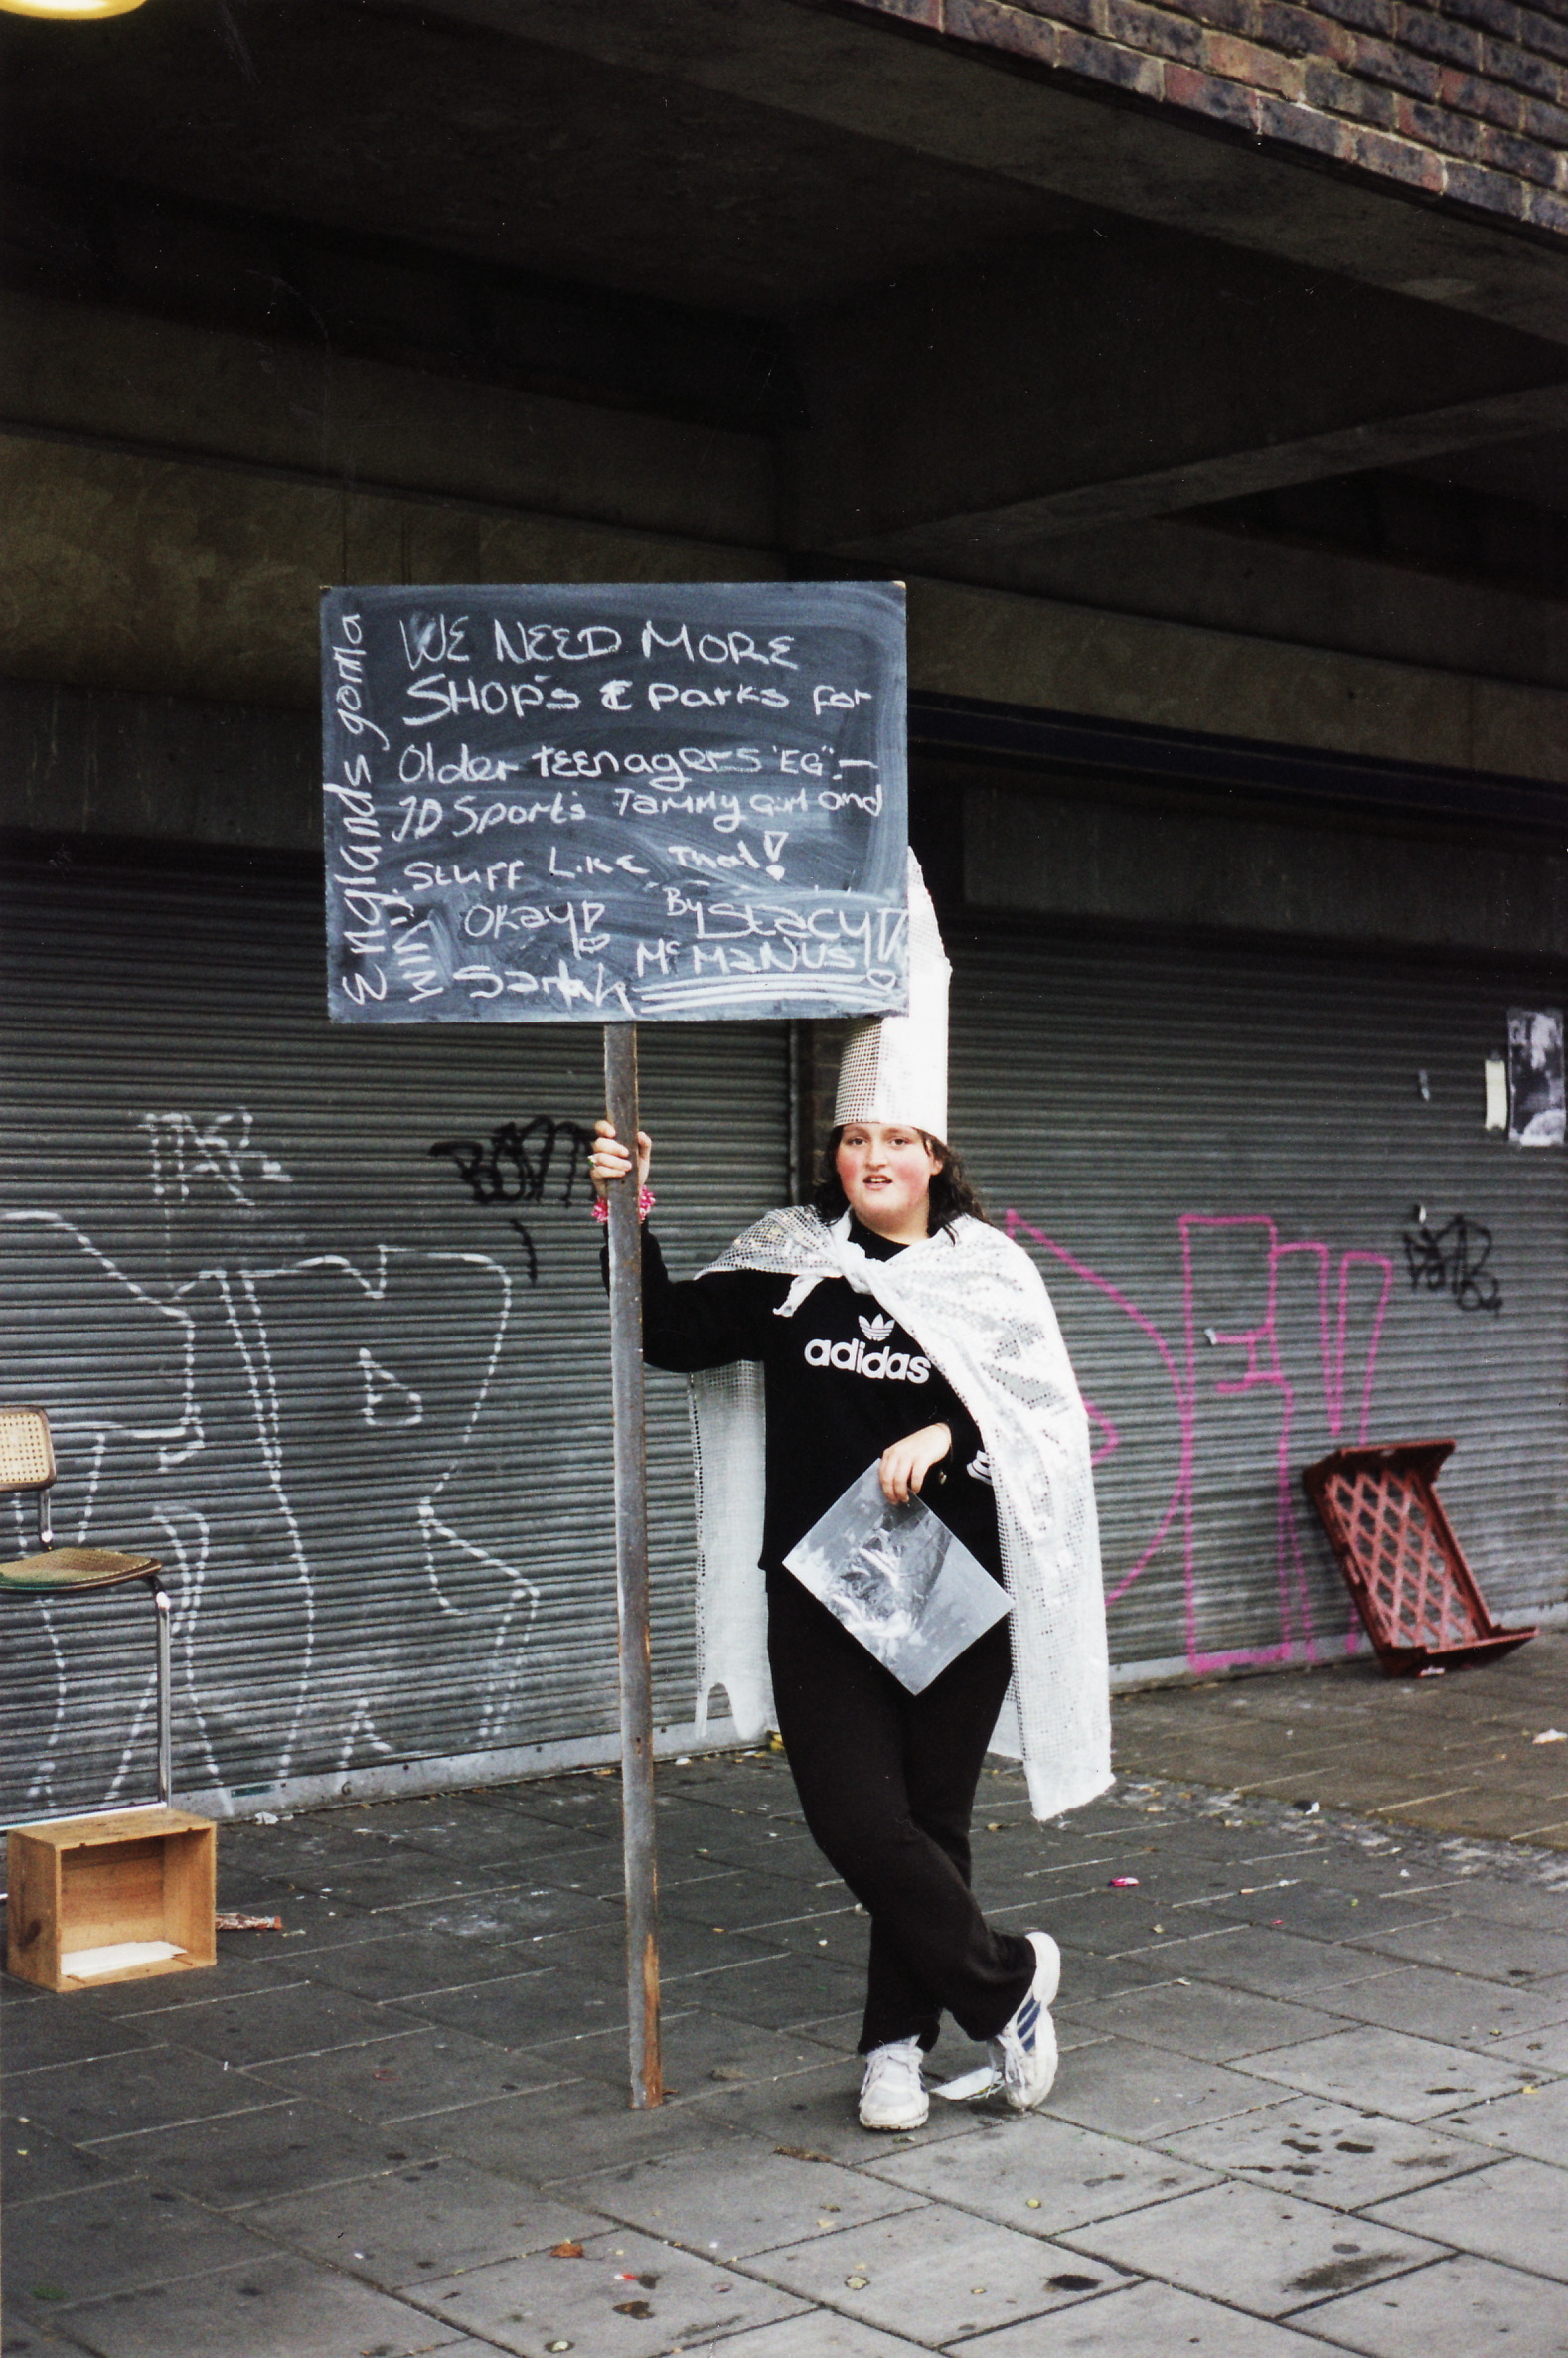 WE NEED MORE
SHOP'S & Parks for
Older teenagers 'EG":-
JD Sport's Tammy Girl and
Stuff Like That!
Okay! "By Stacy!
Mc Manus!
Sarah
Englands gonna
win!
adidas